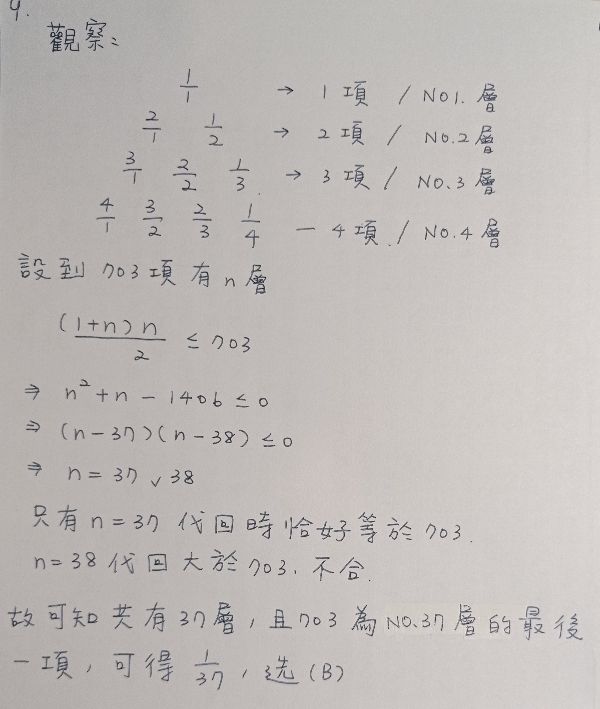 9.
觀察:
1/1 → 1項 / NO1.層
2/1 1/2 → 2項 / NO.2層
3/1 2/2 1/3 → 3項 / NO.3層
4/1 3/2 2/3 1/4 — 4項 / NO.4層
設到703項有n層
(1+n)n/2 ≤ 703
⇒ n²+n-1406 ≤ 0
⇒ (n-37)(n-38) ≤ 0
⇒ n = 37、38
只有n=37代回時恰好等於703.
n=38代回大於703.不合.
故可知共有37層,且703為NO.37層的最後
一項,可得1/37,选(B)